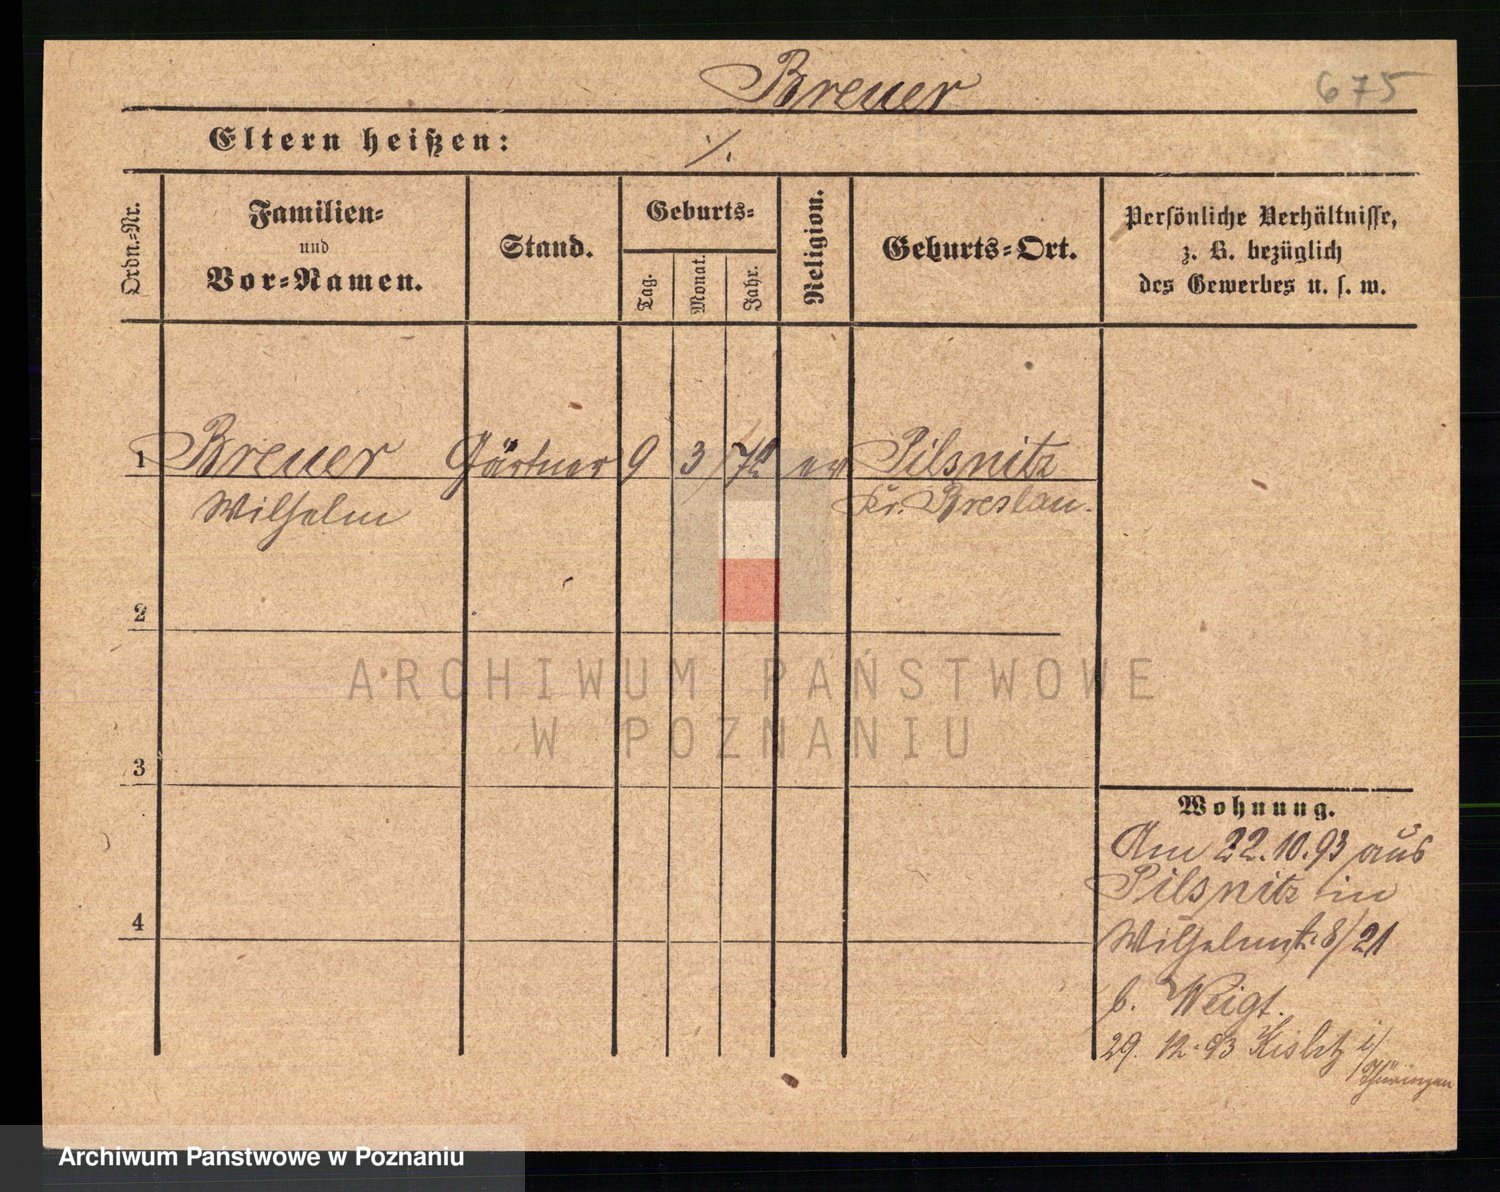 Breuer
675
Eltern heißen: ./.
Ordn.-Nr.
Familien-
und
Vor-Namen.
Stand.
Geburts-
Tag.
Monat.
Jahr.
Religion.
Geburts-Ort.
Persönliche Verhältnisse,
z. B. bezüglich
des Gewerbes u. s. w.
1 Breuer Gärtner 9 3 ev Pilsnitz
Wilhelm Kr. Breslau.
2
3
4
Wohnung.
Am 22.10.93 aus
Pilsnitz in
Wilhelmstr. 8/21
b. Weigt.
29. 12. 93 i/
Thüringen
ARCHIWUM PAŃSTWOWE
W POZNANIU
Archiwum Państwowe w Poznaniu